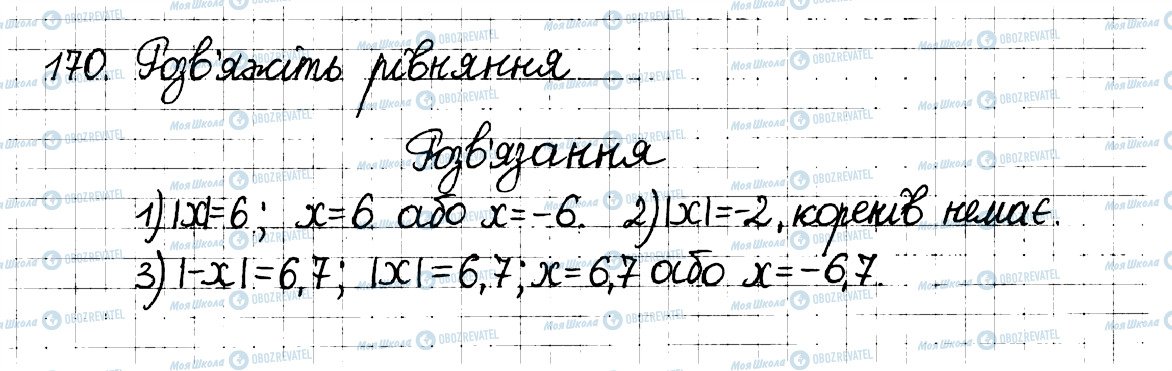 170. Розв'яжіть рівняння
Розв'язання
1) |x|=6; x=6 або x=-6. 2) |x|=-2, коренів немає.
3) |-x|=6,7; |x|=6,7; x=6,7 або x=-6,7.